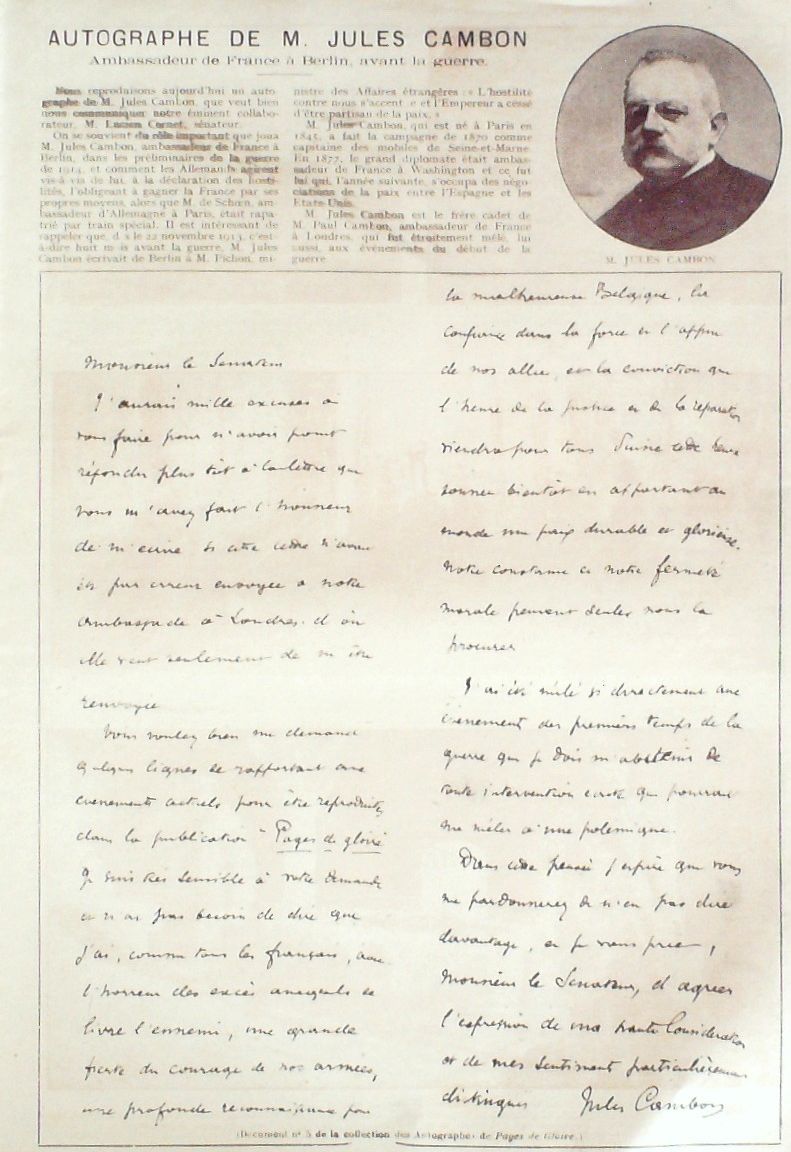 AUTOGRAPHE DE M. JULES CAMBON
Ambassadeur de France à Berlin, avant la guerre.
Nous reproduisons aujourd'hui un auto-
graphe de M. Jules Cambon, que veut bien
nous communiquer notre éminent collabo-
rateur, M. Lucien Cornet, sénateur.
On se souvient du rôle important que joua
M. Jules Cambon, ambassadeur de France à
Berlin, dans les préliminaires de la guerre
de 1914, et comment les Allemands agirent
vis-à-vis de lui, à la déclaration des hosti-
lités, l'obligeant à gagner la France par ses
propres moyens, alors que M. de Schœn, am-
bassadeur d'Allemagne à Paris, était rapa-
trié par train spécial. Il est intéressant de
rappeler que, dès le 22 novembre 1913, c'est-
à-dire huit mois avant la guerre, M. Jules
Cambon écrivait de Berlin à M. Pichon, mi-
nistre des Affaires étrangères : « L'hostilité
contre nous s'accentue et l'Empereur a cessé
d'être partisan de la paix. »
M. Jules Cambon, qui est né à Paris en
1845, a fait la campagne de 1870 comme
capitaine des mobiles de Seine-et-Marne
En 1877, le grand diplomate était ambas-
sadeur de France à Washington et ce fut
lui qui, l'année suivante, s'occupa des négo-
ciations de la paix entre l'Espagne et les
Etats-Unis.
M. Jules Cambon est le frère cadet de
M. Paul Cambon, ambassadeur de France
à Londres, qui fut étroitement mêlé, lui
aussi, aux événements du début de la
guerre
M. JULES CAMBON
Monsieur le Senateur
J'aurais mille excuses à
vous faire pour n'avoir point
répondu plus tôt à la lettre que
vous m'avez fait l'honneur
de m'ecrire si cette lettre n'avait
été par erreur envoyée a notre
ambassade à Londres. d'où
elle vient seulement de m'être
renvoyée
Vous voulez bien me demander
quelques lignes se rapportant aux
evenements actuels pour être reproduites
dans la publication " Pages de gloire
Je suis très sensible à votre demande
et n'ai pas besoin de dire que
j'ai, comme tous les français, avec
l'horreur des excès auxquels se
livre l'ennemi, une grande
fierté du courage de nos armées,
une profonde reconnaissance pour
la malheureuse Belgique, la
confiance dans la force et l'appui
de nos alliés, et la conviction que
l'heure de la justice et de la réparation
viendra pour tous. Puisse cette heure
sonner bientôt en apportant au
monde une paix durable et glorieuse.
Notre constance et notre fermeté
morale peuvent seules nous la
procurer
J'ai été mêlé si directement aux
évènements des premiers temps de la
guerre que je dois m'abstenir de
toute intervention écrite qui pourrait
me mêler à une polemique.
Dans cette pensée j'espère que vous
me pardonnerez de n'en pas dire
davantage, et je vous prie,
Monsieur le Senateur, d'agréer
l'expression de ma haute Consideration
et de mes sentiments particulièrement
distingués Jules Cambon
(Document n° 5 de la collection des Autographes de Pages de Gloire.)